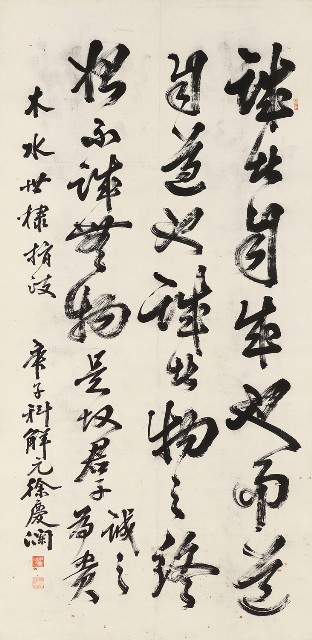 誠者自成也而道
自道也誠者物之終
始不誠無物是故君子誠之為貴
木水世棣指
庚子科解元徐慶瀾